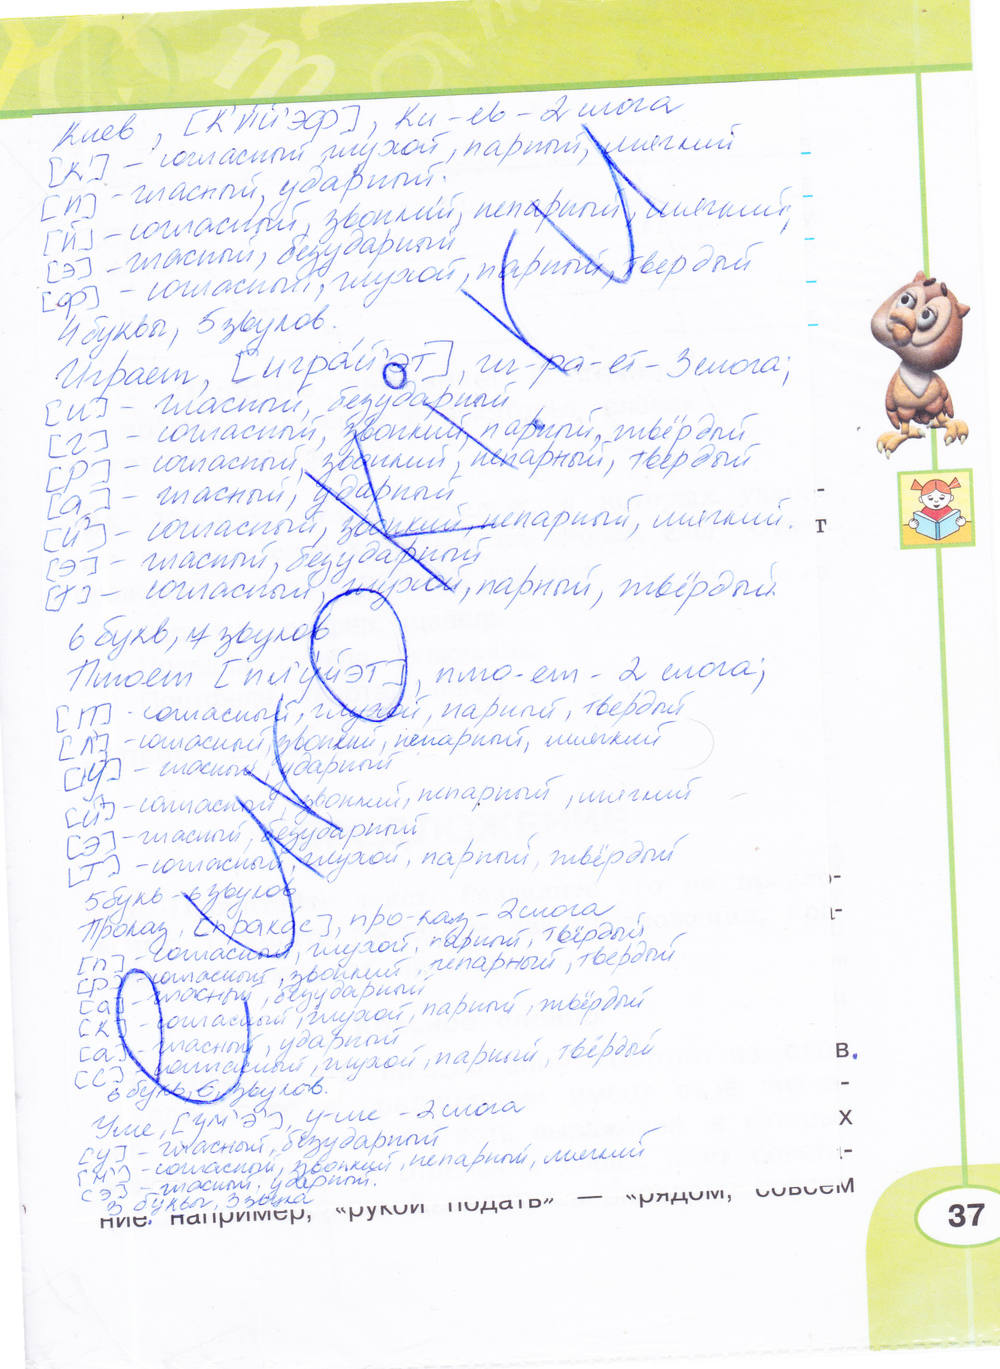 Киев, [к'ий'эф], Ки-ев - 2 слога
[к'] - согласный глухой, парный, мягкий
[и] - гласный, ударный.
[й'] - согласный, звонкий, непарный, мягкий,
[э] - гласный, безударный
[ф] - согласный, глухой, парный, твердый
4 буквы, 5 звуков.
Играет, [играй'эт], иг-ра-ет - 3 слога;
[и] - гласный, безударный
[г] - согласный, звонкий, парный, твёрдый
[р] - согласный, звонкий, непарный, твердый
[а] - гласный, ударный
[й'] - согласный, звонкий, непарный, мягкий.
[э] - гласный, безударный
[т] - согласный, глухой, парный, твёрдый.
6 букв, 7 звуков
[пл'уй'эт], - 2 слога;
[п] - согласный, глухой, парный, твердый
[л'] - согласный, звонкий, непарный, мягкий
[у] - гласный, ударный
[й'] - согласный, звонкий, непарный, мягкий
[э] - гласный, безударный
[т] - согласный, глухой, парный, твёрдый
5 букв - 6 звуков
Проказ, [пракас], про-каз - 2 слога
[п] - согласный, глухой, парный, твёрдый
[р] - согласный, звонкий, непарный, твердый
[а] - гласный, безударный
[к] - согласный, глухой, парный, твёрдый
[а] - гласный, ударный
[с] - согласный, глухой, парный, твёрдый
6 букв, 6 звуков.
Уме, [ум'э], у-ме - 2 слога
[у] - гласный, безударный
[м'] - согласный, звонкий, непарный, мягкий
[э] - гласный, ударный.
3 буквы, 3 звука
т
в.
х
ние, например, «рукой подать» — «рядом, совсем
37